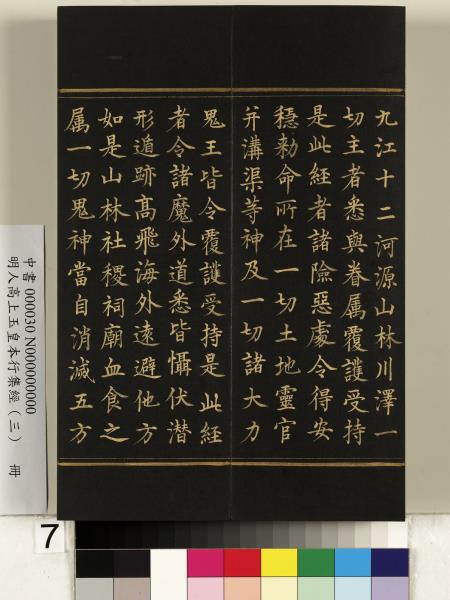 九江十二河源山林川澤一
切主者悉與眷属覆護受持
是此経者諸險惡處令得安
穏勑命所在一切土地靈官
并溝渠等神及一切諸大力
鬼王皆令覆護受持是此經
者令諸魔外道悉皆懾伏潜
形遁跡髙飛海外逺避他方
如是山林社稷祠廟血食之
属一切鬼神當自消滅五方
中書 000030 N000000000
明人高上玉皇本行集經（三） 冊
7